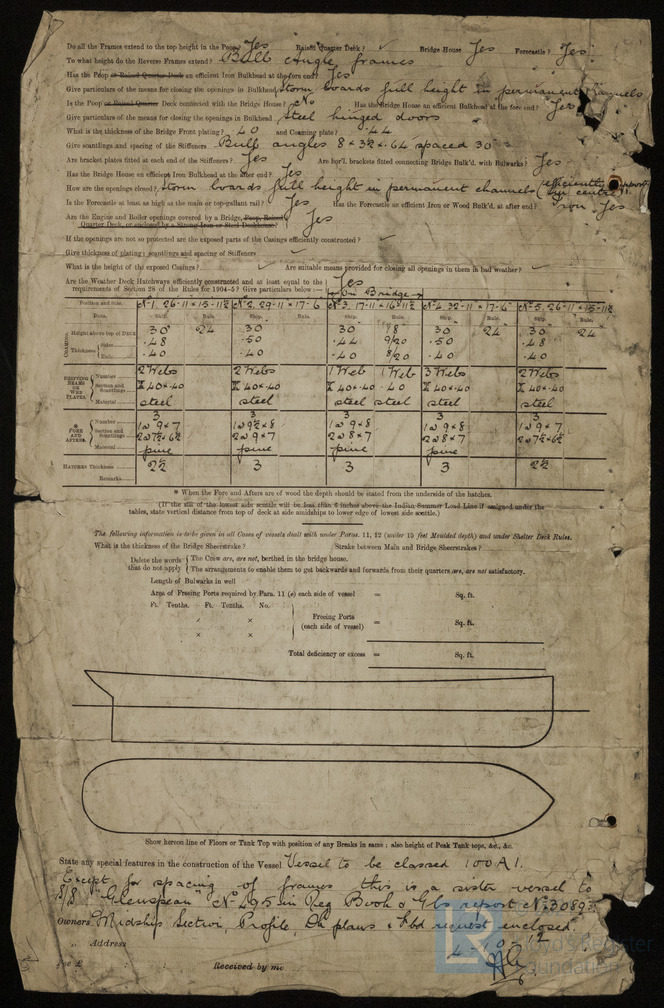 Do all the Frames extend to the top height in the Poop? Yes Raised Quarter Deck? ✓ Bridge House Yes Forecastle? Yes
To what height do the Reverse Frames extend? Bulb angle frames
Has the Poop or Raised Quarter Deck an efficient Iron Bulkhead at the fore end? Yes
Give particulars of the means for closing the openings in Bulkhead Storm boards full height in permanent channels
Is the Poop or Raised Quarter Deck connected with the Bridge House? No Has the Bridge House an efficient Bulkhead at the fore end? Yes
Give particulars of the means for closing the openings in Bulkhead Steel hinged doors
What is the thickness of the Bridge Front plating? .40 and Coaming plate? .44
Give scantlings and spacing of the Stiffeners Bulb angles 8 x 3½ x .64 spaced 30"
Are bracket plates fitted at each end of the Stiffeners? Yes Are hor'l. brackets fitted connecting Bridge Bulk'd. with Bulwarks? Yes
Has the Bridge House an efficient Iron Bulkhead at the after end? Yes
How are the openings closed? Storm boards full height in permanent channels (efficiently support in centre)
Is the Forecastle at least as high as the main or top-gallant rail? Yes Has the Forecastle an efficient Iron or Wood Bulk'd. at after end? Iron Yes
Are the Engine and Boiler openings covered by a Bridge, Poop, Raised Yes
Quarter Deck, or enclosed by a Strong Iron or Steel Deckhouse?
If the openings are not so protected are the exposed parts of the Casings efficiently constructed? ✓
Give thickness of plating; scantlings and spacing of Stiffeners ✓
What is the height of the exposed Casings? ✓ Are suitable means provided for closing all openings in them in bad weather? ✓
Are the Weather Deck Hatchways efficiently constructed and at least equal to the Yes
requirements of Section 28 of the Rules for 1904-5? Give particulars below:— on Bridge
Position and Size. No 1. 26-11 x 15-11½ No 2. 29-11 x 17-6 No 3. 17-11 x 16-11½ No 4. 32-11 x 17-6 No 5. 26-11 x 15-11½
Item. Ship. Rule. Ship. Rule. Ship. Rule. Ship. Rule. Ship. Rule.
COAMING Height above top of DECK 30" 24 30 30 18 30 24 30 24
Thickness Sides .48 .50 .44 9/20 .50 .48
Ends .40 .40 .40 8/20 .40 .40
SHIFTING BEAMS OR WEB PLATES. Number 2 Webs 2 Webs 1 Web 1 Web 3 Webs 2 Webs
Section and Scantlings 40 x .40 40 x .40 40 x .40 .40 40 x .40 40 x .40
Material steel steel steel steel steel steel
* FORE AND AFTERS. Number 3 3 3 3 3
Section and Scantlings 1 @ 9 x 7 1 @ 9½ x 8 1 @ 9 x 8 1 @ 9 x 8 1 @ 9 x 7
2 @ 7½ x 6½ 2 @ 9 x 7 2 @ 8 x 7 2 @ 8 x 7 2 @ 7½ x 6½
Material pine pine pine pine pine
HATCHES Thickness 2½ 3 3 3 2½
Remarks
* When the Fore and Afters are of wood the depth should be stated from the underside of the hatches.
(If the sill of the lowest side scuttle will be less than 6 inches above the Indian Summer Load Line if assigned under the
tables, state vertical distance from top of deck at side amidships to lower edge of lowest side scuttle.)
The following information is to be given in all Cases of Vessels dealt with under Paras. 11, 12 (under 15 feet Moulded depth) and under Shelter Deck Rules.
What is the thickness of the Bridge Sheerstrake? Strake between Main and Bridge Sheerstrakes?
Delete the words that do not apply { The Crew are, are not, berthed in the bridge house.
The arrangements to enable them to get backwards and forwards from their quarters are, are not satisfactory.
Length of Bulwarks in well
Area of Freeing Ports required by Para. 11 (e) each side of vessel = Sq. ft.
Ft. Tenths. Ft. Tenths. No.
x x
Freeing Ports (each side of vessel) = Sq. ft.
x x
Total deficiency or excess = Sq. ft.
Show hereon line of Floors or Tank Top with position of any Breaks in same; also height of Peak Tank tops, &c., &c.
State any special features in the construction of the Vessel Vessel to be classed 100 A1.
Except for spacing of frames this is a sister vessel to
S/S "Glenspean" No 495 in Reg Book & Gls report No 30893
Owners Midship Section, Profile, Dk plans & Fbd request enclosed
„ Address
Received by me
LR Lloyd's Register Foundation